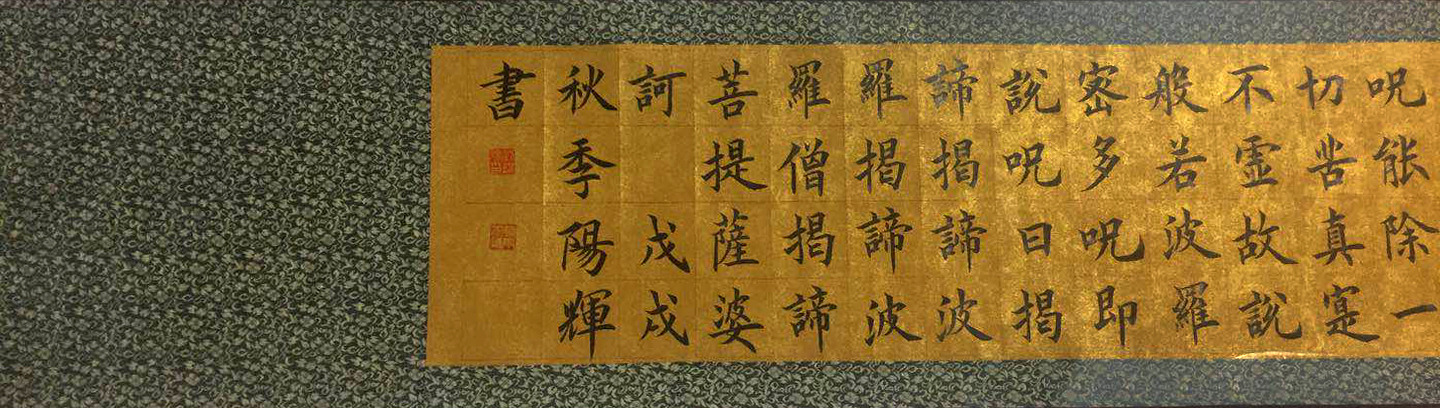 呪能除一
切苦真寔
不霊故說
般若波羅
宻多呪即
說呪曰揭
諦揭諦波
羅揭諦波
羅僧揭諦
菩提薩婆
訶 戊戌
秋季陽輝
書